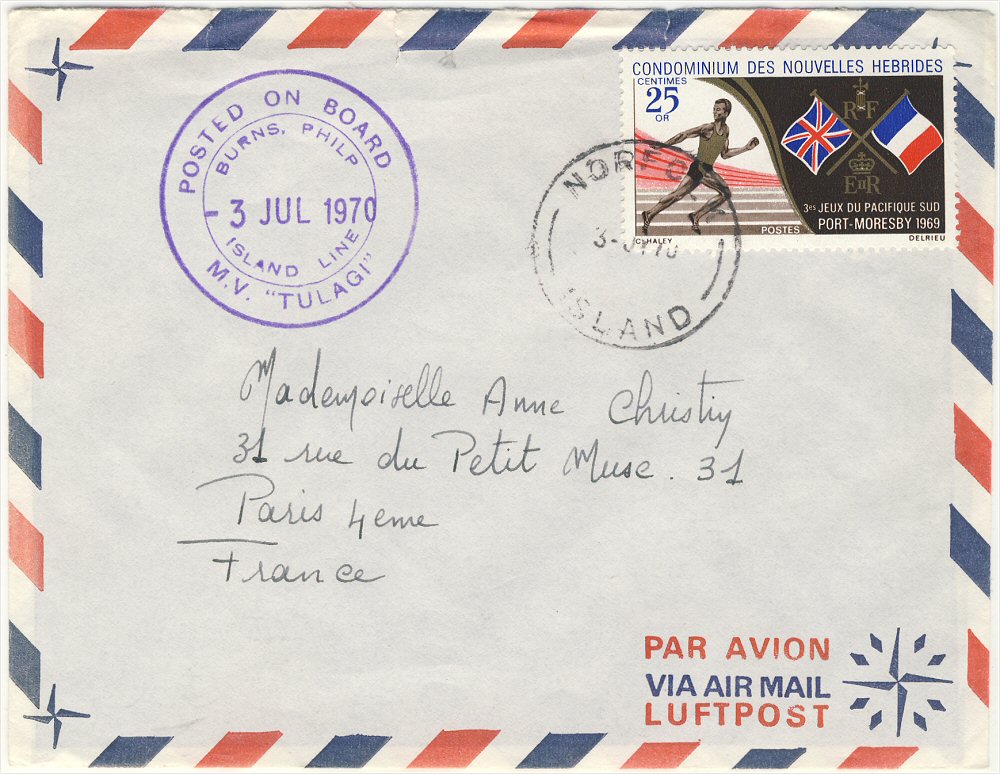 POSTED ON BOARD
BURNS, PHILP
- 3 JUL 1970
ISLAND LINE
M.V. "TULAGI"
CONDOMINIUM DES NOUVELLES HEBRIDES
CENTIMES
25
OR
RF
EIIR
3es JEUX DU PACIFIQUE SUD
PORT-MORESBY 1969
POSTES
C. HALEY
DELRIEU
NORFOLK
ISLAND
Mademoiselle Anne Christiy
31 rue du Petit Musc. 31
Paris 4eme
France
PAR AVION
VIA AIR MAIL
LUFTPOST